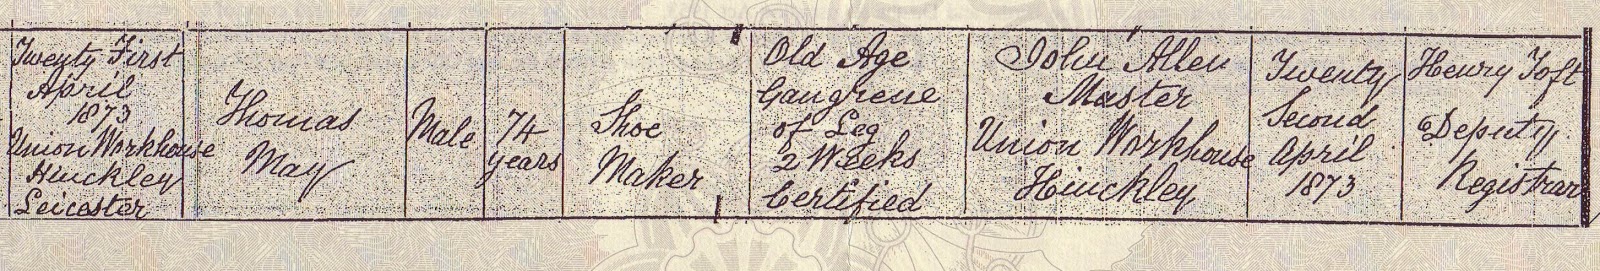 Twenty First
April
1873
Union Workhouse
Hinckley
Leicester
Thomas
May
Male
74
years
Shoe
Maker
Old Age
Gangrene
of Leg
2 Weeks
Certified
John Allen
Master
Union Workhouse
Hinckley
Twenty
Second
April
1873
Henry Toft
Deputy
Registrar